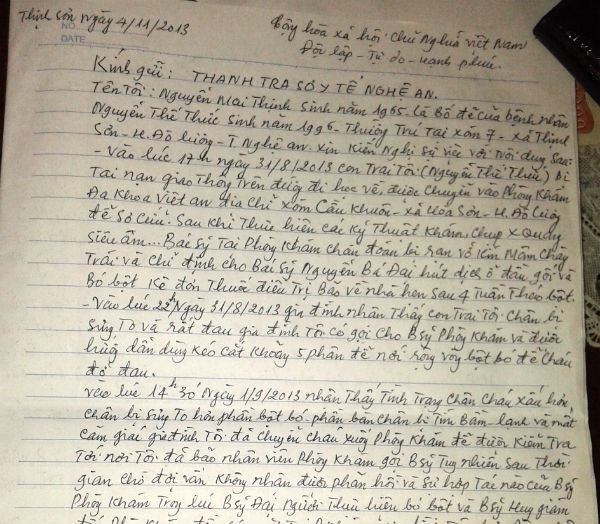 Thịnh Sơn Ngày 4/11/2013
Cộng hòa xã hội chủ Nghĩa việt Nam
NO.
DATE
Độc lập - Tự do - Hạnh phúc.
Kính gửi: THANH TRA SỞ Y TẾ NGHỆ AN.
Tên Tôi: Nguyễn Mai Thịnh Sinh năm 1965. Là Bố đẻ của bệnh nhân
Nguyễn Thế Thức Sinh năm 1996. Thường Trú Tại xóm 7 - xã Thịnh
Sơn - H. Đô lương - T Nghệ an. Xin Kiến Nghị Sự việc với Nội dung Sau:
- Vào lúc 17h ngày 31/8/2013 con Trai Tôi (Nguyễn Thế Thức) bị
Tai nạn giao Thông Trên đường đi học về, được chuyển vào Phòng Khám
Đa Khoa Việt an địa chỉ xóm Cầu Khuôn - xã Hòa Sơn - H. Đô lương
để Sơ Cứu. Sau Khi Thực hiện các Kỹ Thuật Khám, Chụp X Quang
Siêu âm... Bác Sỹ Tại Phòng Khám chẩn đoán bị rạn vỡ Kín Mâm Chày
Trái và chỉ định cho Bác Sỹ Nguyễn Bá Đại hút dịch ở đầu gối và
Bó bột Kê đơn Thuốc điều Trị Bảo về nhà hẹn Sau 4 Tuần Tháo bột.
- Vào lúc 22h Ngày 31/8/2013 gia đình nhận Thấy con Trai Tôi Chân bị
Sưng To và rất đau gia đình Tôi có gọi cho BSỹ Phòng Khám và được
hướng dẫn dùng Kéo cắt Khoảng 5 phân để nới rộng vòng bột bó để Cháu
đỡ đau.
Vào lúc 14h 30' Ngày 1/9/2013 nhận Thấy Tình Trạng Chân Cháu xấu hơn
chân bị Sưng To hơn phần bột bó phần bàn chân bị Tím Bầm - lạnh và mất
cảm giác gia đình Tôi đã chuyển cháu xuống Phòng Khám để được Kiểm Tra
Tới nơi Tôi đã bảo nhân viên Phòng Khám gọi BSỹ Tuy nhiên Sau Thời
gian chờ đợi vẫn Không nhận được phản hồi và Sự hợp Tác nào của BSỹ
Phòng Khám Trong lúc BSỹ Đại người Thực hiện bó bột và BSỹ Huy giám